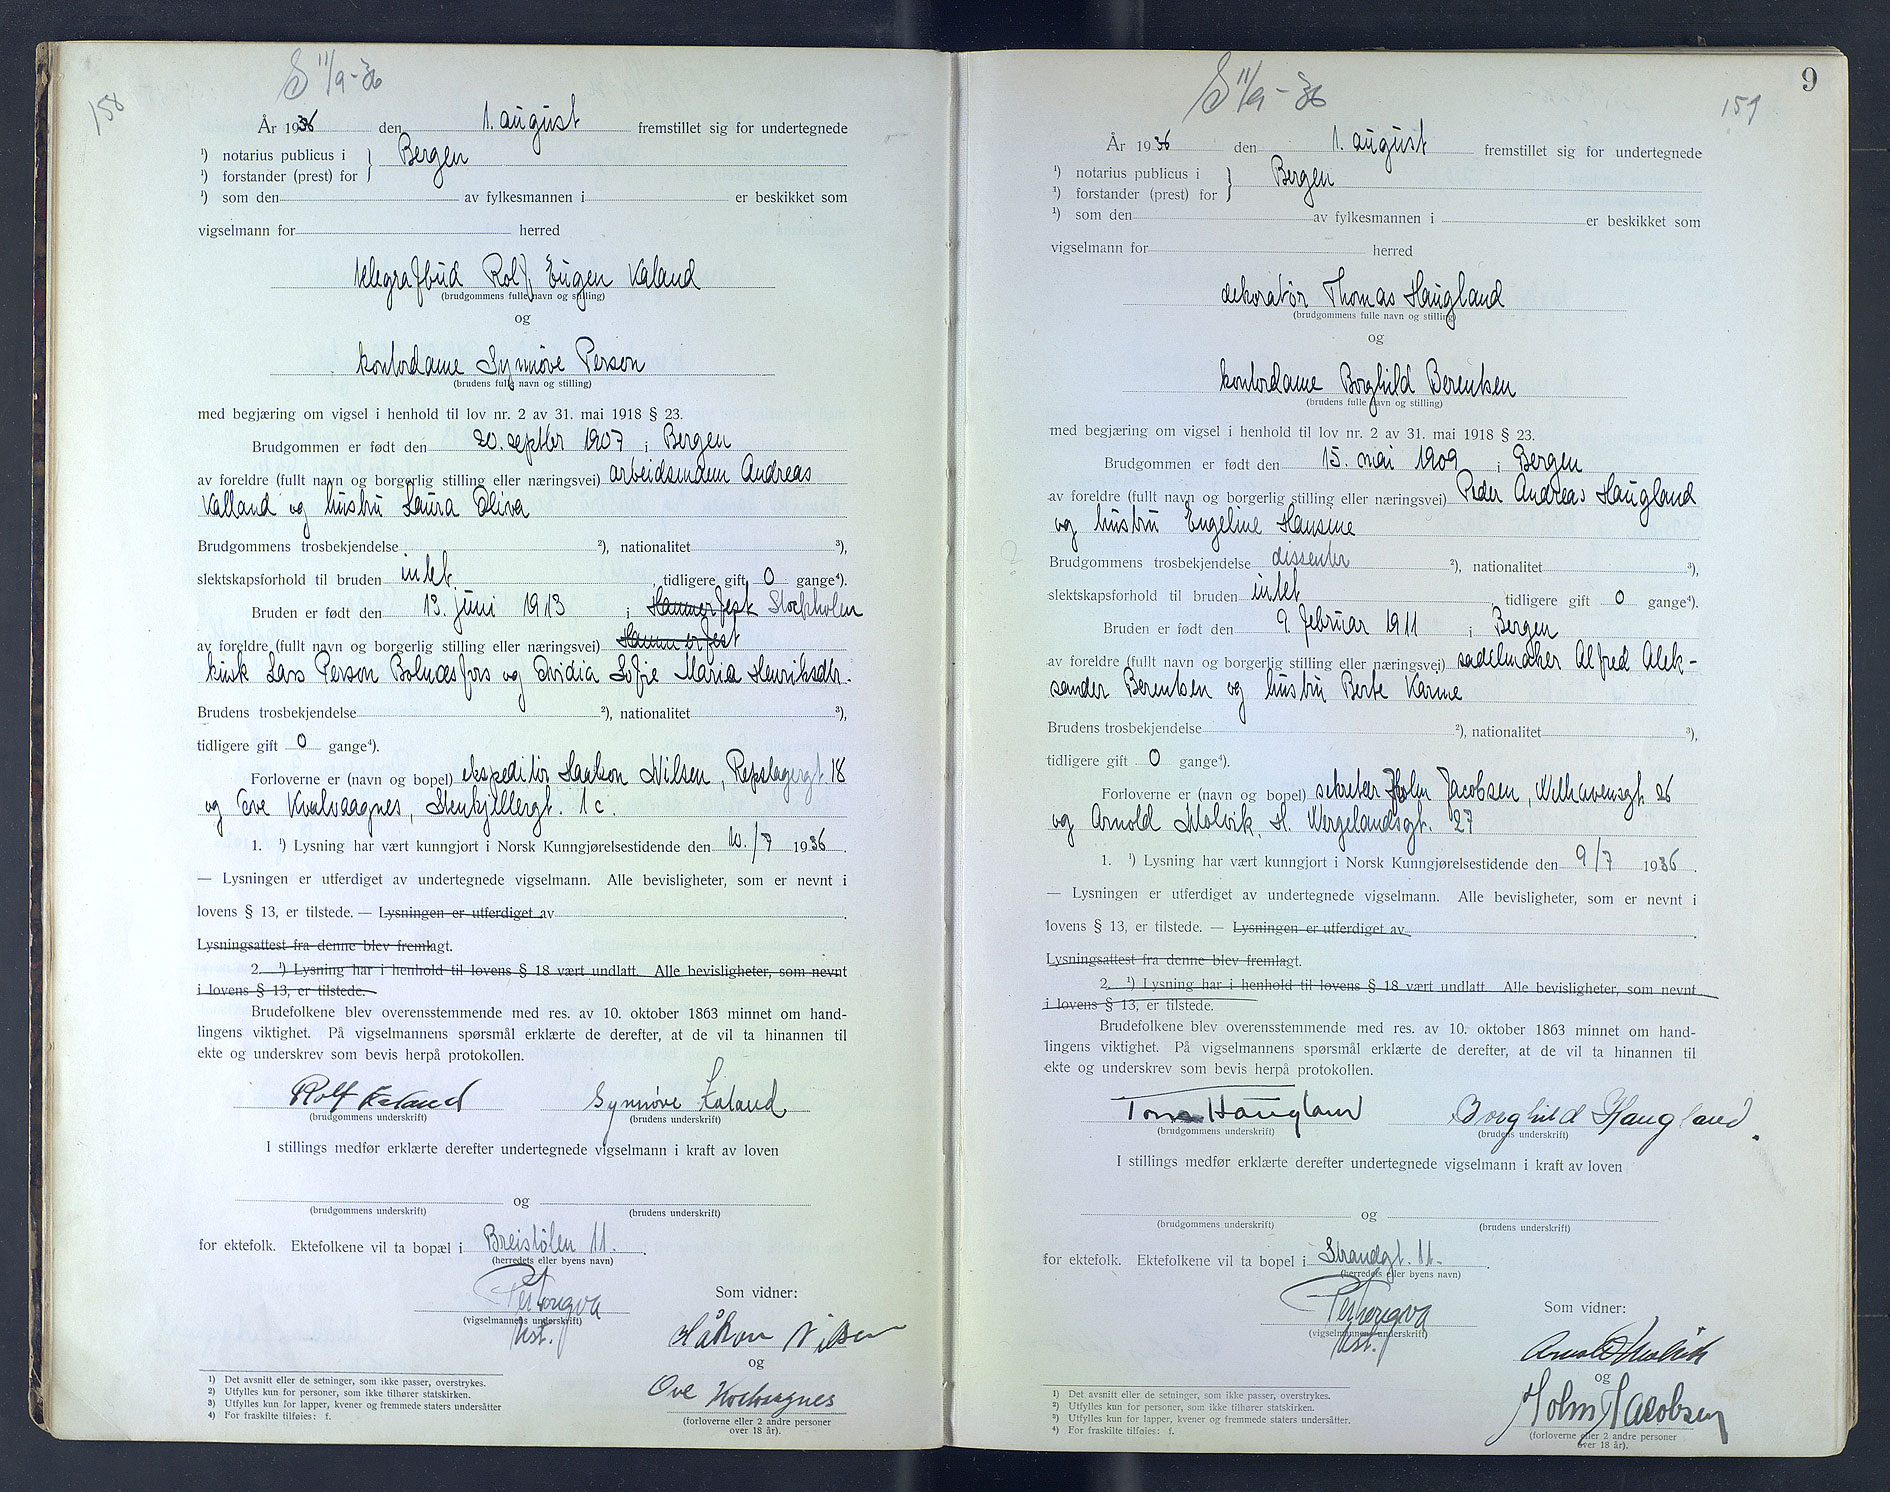 158
S 11/9-36
År 1936 den 1. august fremstillet sig for undertegnede
¹) notarius publicus i } Bergen
¹) forstander (prest) for
¹) som den av fylkesmannen i er beskikket som
vigselmann for herred
telegrafbud Rolf Eugen Kaland
(brudgommens fulle navn og stilling)
og
kontordame Synnøve Person
(brudens fulle navn og stilling)
med begjæring om vigsel i henhold til lov nr. 2 av 31. mai 1918 § 23.
Brudgommen er født den 20. septbr 1907 i Bergen
av foreldre (fullt navn og borgerlig stilling eller næringsvei) arbeidsmann Andreas
Kalland og hustru Laura Oliva
Brudgommens trosbekjendelse ²), nationalitet ³),
slektskapsforhold til bruden intet, tidligere gift 0 gange⁴).
Bruden er født den 13. juni 1913 i Hammerfest Stockholm
av foreldre (fullt navn og borgerlig stilling eller næringsvei) Hammerfest
kusk Lars Person Bolnæsfors og Ovidia Sofie Maria Henriksdtr.
Brudens trosbekjendelse ²), nationalitet ³),
tidligere gift 0 gange⁴).
Forloverne er (navn og bopel) ekspeditør Haakon Nilsen, Repslagergt. 18
og Ove Kvalvaagnes, Stenkjellergt. 1c.
1. ¹) Lysning har vært kunngjort i Norsk Kunngjørelsestidende den 10./7 1936.
— Lysningen er utferdiget av undertegnede vigselmann. Alle bevisligheter, som er nevnt i
lovens § 13, er tilstede. — Lysningen er utferdiget av
Lysningsattest fra denne blev fremlagt.
2. ¹) Lysning har i henhold til lovens § 18 vært undlatt. Alle bevisligheter, som nevnt
i lovens § 13, er tilstede.
Brudefolkene blev overensstemmende med res. av 10. oktober 1863 minnet om hand-
lingens viktighet. På vigselmannens spørsmål erklærte de derefter, at de vil ta hinannen til
ekte og underskrev som bevis herpå protokollen.
Rolf Kaland Synnøve Kaland
(brudgommens underskrift) (brudens underskrift)
I stillings medfør erklærte derefter undertegnede vigselmann i kraft av loven
og
(brudgommens underskrift) (brudens underskrift)
for ektefolk. Ektefolkene vil ta bopæl i Breistølen 11.
(herredets eller byens navn)
(vigselmannens underskrift)
Som vidner:
Håkon Nilsen
og
Ove Kvalvaagnes
(forloverne eller 2 andre personer
over 18 år).
¹) Det avsnitt eller de setninger, som ikke passer, overstrykes.
²) Utfylles kun for personer, som ikke tilhører statskirken.
³) Utfylles kun for lapper, kvener og fremmede staters undersåtter
⁴) For fraskilte tilføies: f.
9
159
S 11/9-36
År 1936 den 1. august fremstillet sig for undertegnede
¹) notarius publicus i } Bergen
¹) forstander (prest) for
¹) som den av fylkesmannen i er beskikket som
vigselmann for herred
dekoratør Thomas Haugland
(brudgommens fulle navn og stilling)
og
kontordame Borghild Berentsen
(brudens fulle navn og stilling)
med begjæring om vigsel i henhold til lov nr. 2 av 31. mai 1918 § 23.
Brudgommen er født den 15. mai 1909 i Bergen
av foreldre (fullt navn og borgerlig stilling eller næringsvei) Peder Andreas Haugland
og hustru Engeline Hansine
Brudgommens trosbekjendelse dissenter ²), nationalitet ³),
slektskapsforhold til bruden intet, tidligere gift 0 gange⁴).
Bruden er født den 9. februar 1911 i Bergen
av foreldre (fullt navn og borgerlig stilling eller næringsvei) sadelmaker Alfred Alek-
sander Berentsen og hustru Berte Karine
Brudens trosbekjendelse ²), nationalitet ³),
tidligere gift 0 gange⁴).
Forloverne er (navn og bopel) sekretær Holm Jacobsen, Welhavensgt. 26
og Arnold Molvik, H. Wergelandsgt. 27
1. ¹) Lysning har vært kunngjort i Norsk Kunngjørelsestidende den 9/7 1936.
— Lysningen er utferdiget av undertegnede vigselmann. Alle bevisligheter, som er nevnt i
lovens § 13, er tilstede. — Lysningen er utferdiget av
Lysningsattest fra denne blev fremlagt.
2. ¹) Lysning har i henhold til lovens § 18 vært undlatt. Alle bevisligheter, som nevnt
i lovens § 13, er tilstede.
Brudefolkene blev overensstemmende med res. av 10. oktober 1863 minnet om hand-
lingens viktighet. På vigselmannens spørsmål erklærte de derefter, at de vil ta hinannen til
ekte og underskrev som bevis herpå protokollen.
Tom Haugland Borghild Haugland.
(brudgommens underskrift) (brudens underskrift)
I stillings medfør erklærte derefter undertegnede vigselmann i kraft av loven
og
(brudgommens underskrift) (brudens underskrift)
for ektefolk. Ektefolkene vil ta bopel i Strandgt. 11.
(herredets eller byens navn)
(vigselmannens underskrift)
Som vidner:
Arnold Molvik
og
Holm Jacobsen
(forloverne eller 2 andre personer
over 18 år).
¹) Det avsnitt eller de setninger, som ikke passer, overstrykes.
²) Utfylles kun for personer, som ikke tilhører statskirken.
³) Utfylles kun for lapper, kvener og fremmede staters undersåtter.
⁴) For fraskilte tilføies: f.